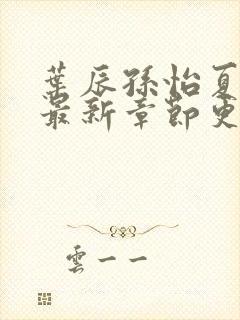 葉辰孫怡夏
最新章節更
雲一一